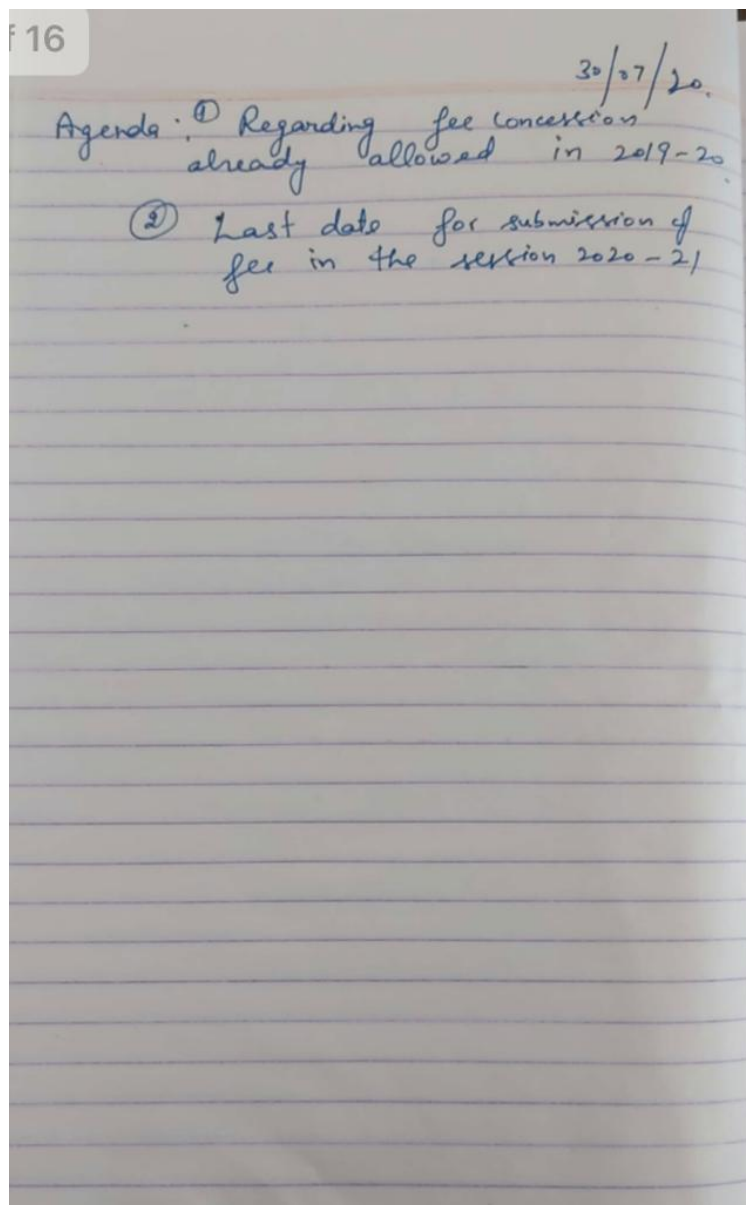 f 16
30/07/20.
Agenda : ① Regarding fee concession
already allowed in 2019-20.
② Last date for submission of
fee in the session 2020-21